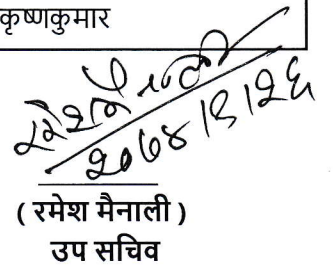 कृष्णकुमार
२०७४।९।२६
( रमेश मैनाली )
उप सचिव